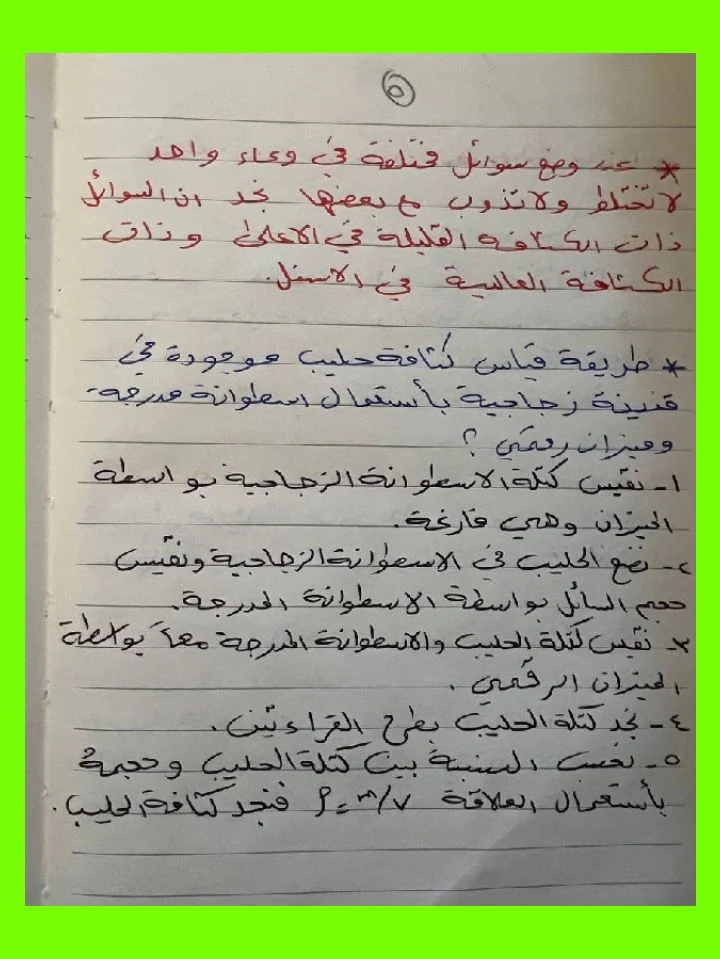 ٥
* عند وضع سوائل مختلفة في وعاء واحد
لا تختلط ولا تذوب مع بعضها نجد ان السوائل
ذات الكثافة القليلة في الاعلى وذات
الكثافة العالية في الاسفل.
* طريقة قياس كثافة حليب موجودة في
قنينة زجاجية بأستعمال اسطوانة مدرجة
وميزان رقمي ؟
١- نقيس كتلة الاسطوانة الزجاجية بواسطة
الميزان وهي فارغة.
٢- نضع الحليب في الاسطوانة الزجاجية ونقيس
حجم السائل بواسطة الاسطوانة المدرجة.
٣- نقيس كتلة الحليب والاسطوانة المدرجة معاً بواسطة
الميزان الرقمي.
٤- نجد كتلة الحليب بطرح القراءتين.
٥- نحسب النسبة بين كتلة الحليب وحجمة
بأستعمال العلاقة ρ = m/v فنجد كثافة الحليب.